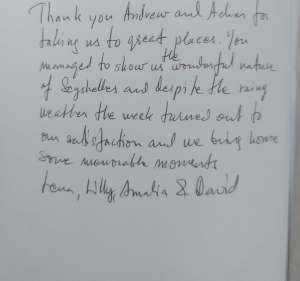 Thank you Andrew and for
taking us to great places. You
managed to show us the wonderful nature
of Seychelles and despite the rainy
weather the week turned out to
our satisfaction and we bring home
some memorable moments
Lena, Lilly, Amalia & David